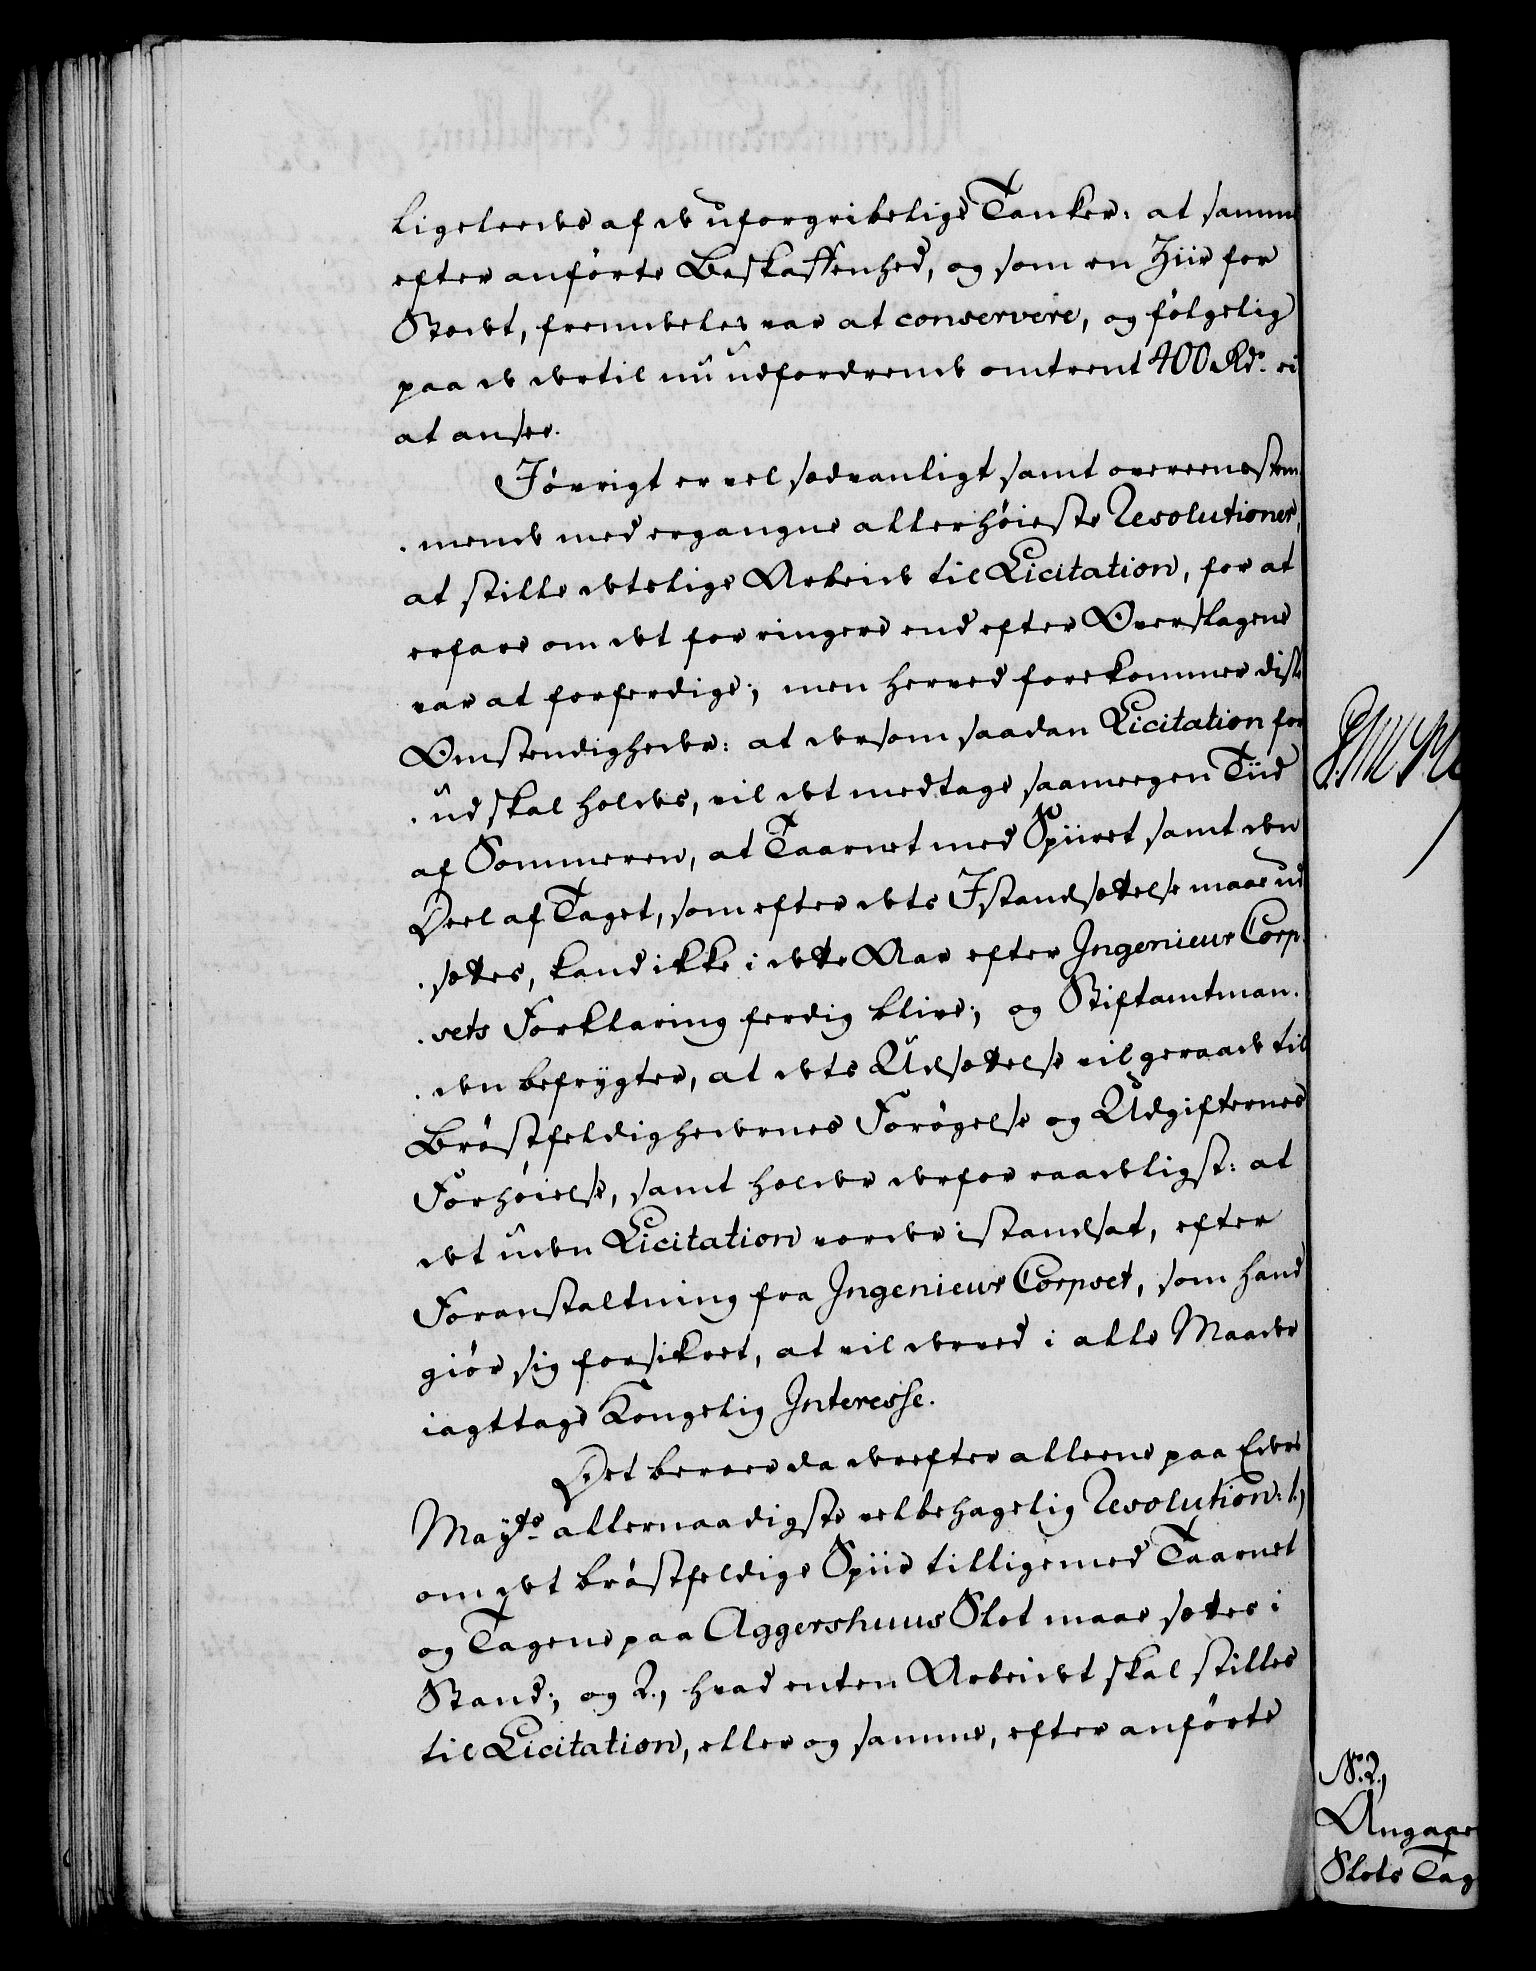 ligeleedes af de uforgribelige Tanker: at samme
efter anførte Beskaffenhed, og som en Ziir for
Stædet, fremdeles var at conservere, og følgelig
paa de dertil nu udfordrende omtrent 400 Rdr. ei
at ansee.
Jøvrigt er vel sædvanligt samt overeenstem-
-mende med ergangne allerhøieste Resolutioner,
at stille detslige Arbeide til Licitation, for at
erfare om det for ringere end efter Overslagene
var at forferdige; men herved forekommer disse
Omstendigheder: at dersom saadan Licitation for-
-ud skal holdes, vil det medtage saameegen Tiid
af Sommeren, at Taarnet med Spiiret samt den
Deel af Taget, som efter dets Jstandsættelse maae ud-
-sættes, kand ikke i dette Aar efter Ingenieur Corp-
-sets Forklaring ferdig blive; og Stiftamtman-
-den befrygter, at dets Udsættelse vil geraade til
Brøstfeldighedernes Forøgelse og Udgifternes
Forhøielse, samt holder derfor raadeligst: at
det uden Licitation vorder istandsat, efter
Foranstaltning fra Ingenieur Corpset, som hand
giør sig forsikret, at vil derved i alle Maader
iagttage Kongelig Interesse.
Det beroer da derefter alleene paa Eders
Mayts allernaadigste velbehagelig Resolution: 1.)
om det brøstfeldige Spiir tilligemed Taarnet
og Tagene paa Aggershuus Slot maae sættes i
Stand; og 2., hvad enten Arbeidet skal stilles
til Licitation, eller og samme, efter anførte
N. 2,
Angaae
Slots Tag